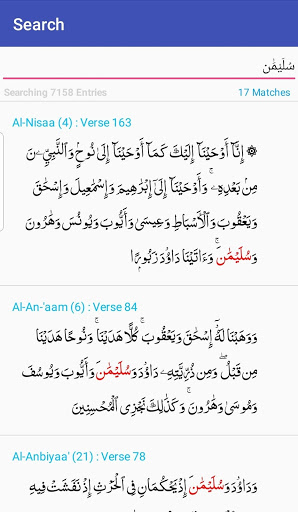 Search
سُلَيْمَٰن
Searching 7158 Entries 17 Matches
Al-Nisaa (4) : Verse 163
۞ إِنَّآ أَوْحَيْنَآ إِلَيْكَ كَمَآ أَوْحَيْنَآ إِلَىٰ نُوحٍ وَٱلنَّبِيِّـۧنَ
مِنۢ بَعْدِهِۦ ۚ وَأَوْحَيْنَآ إِلَىٰٓ إِبْرَٰهِيمَ وَإِسْمَٰعِيلَ وَإِسْحَٰقَ
وَيَعْقُوبَ وَٱلْأَسْبَاطِ وَعِيسَىٰ وَأَيُّوبَ وَيُونُسَ وَهَٰرُونَ
وَسُلَيْمَٰنَ ۚ وَءَاتَيْنَا دَاوُۥدَ زَبُورًا
Al-An-'aam (6) : Verse 84
وَوَهَبْنَا لَهُۥٓ إِسْحَٰقَ وَيَعْقُوبَ ۚ كُلًّا هَدَيْنَا ۚ وَنُوحًا هَدَيْنَا
مِن قَبْلُ ۖ وَمِن ذُرِّيَّتِهِۦ دَاوُۥدَ وَسُلَيْمَٰنَ وَأَيُّوبَ وَيُوسُفَ
وَمُوسَىٰ وَهَٰرُونَ ۚ وَكَذَٰلِكَ نَجْزِى ٱلْمُحْسِنِينَ
Al-Anbiyaa' (21) : Verse 78
وَدَاوُۥدَ وَسُلَيْمَٰنَ إِذْ يَحْكُمَانِ فِى ٱلْحَرْثِ إِذْ نَفَشَتْ فِيهِ